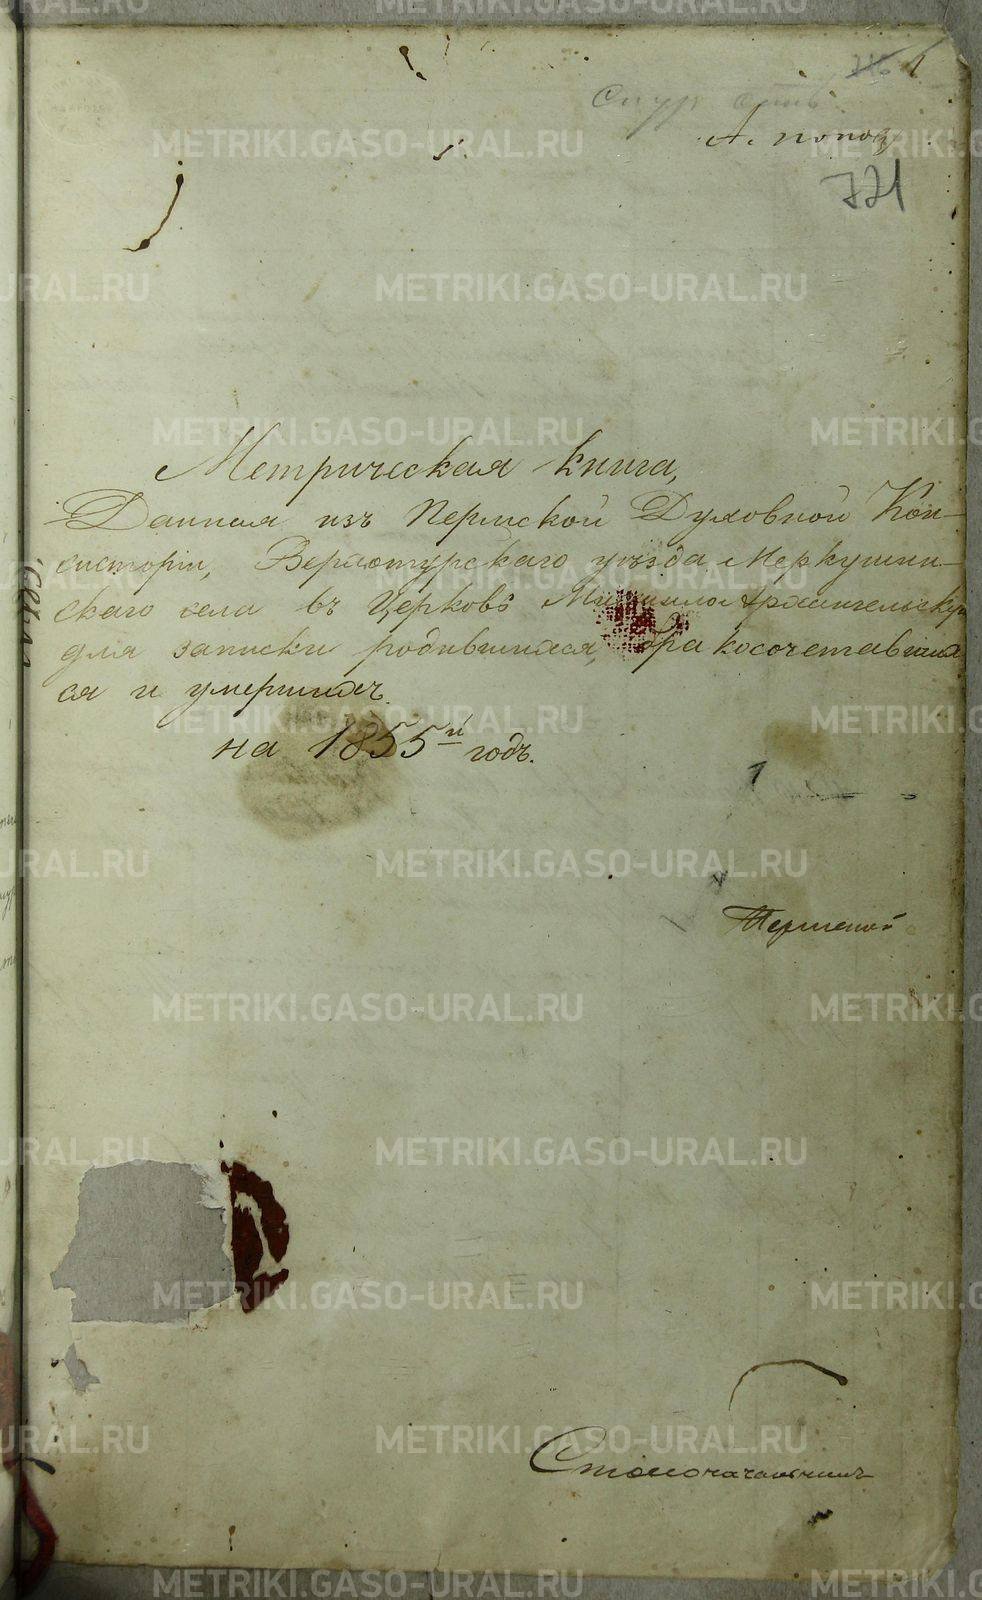 1
А. Попов
721
Метрическая книга,
Данная изъ Пермской Духовной Кон-
систоріи, Верхотурскаго уѣзда Меркушин-
скаго села въ Церковь Михаило Архангельскую
для записки родившихся, бракосочетавших
ся и умершихъ
на 1855й годъ.
1
Пермской
Столоначальникъ
METRIKI.GASO-URAL.RU